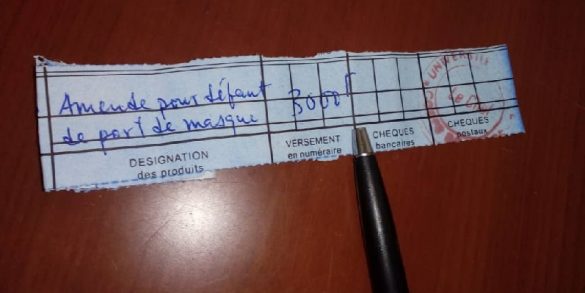 Amende pour défaut
de port de masque
3000F
DESIGNATION
des produits
VERSEMENT
en numéraire
CHEQUES
bancaires
CHEQUES
postaux
UNIVERSITE
Le Chef